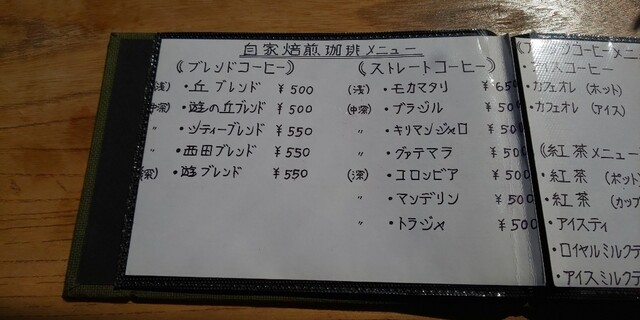 自家焙煎珈琲メニュー
《ブレンドコーヒー》
(浅) ・丘ブレンド ¥500
(中深) ・遊の丘ブレンド ¥500
〃 ・シティーブレンド ¥550
〃 ・西田ブレンド ¥550
(深) ・遊ブレンド ¥550
《ストレートコーヒー》
(浅) ・モカマタリ ¥650
(中深) ・ブラジル ¥50
〃 ・キリマンジャロ ¥50
〃 ・グァテマラ ¥50
(深) ・コロンビア ¥500
〃 ・マンデリン ¥500
〃 ・トラジャ ¥500
コーヒーメニ
アイスコーヒー
・カフェオレ (ホット)
・カフェオレ (アイス)
《紅茶メニュー
・紅茶 (ポット
・紅茶 (カップ
・アイスティ
・ロイヤルミルクテ
・アイスミルクテ